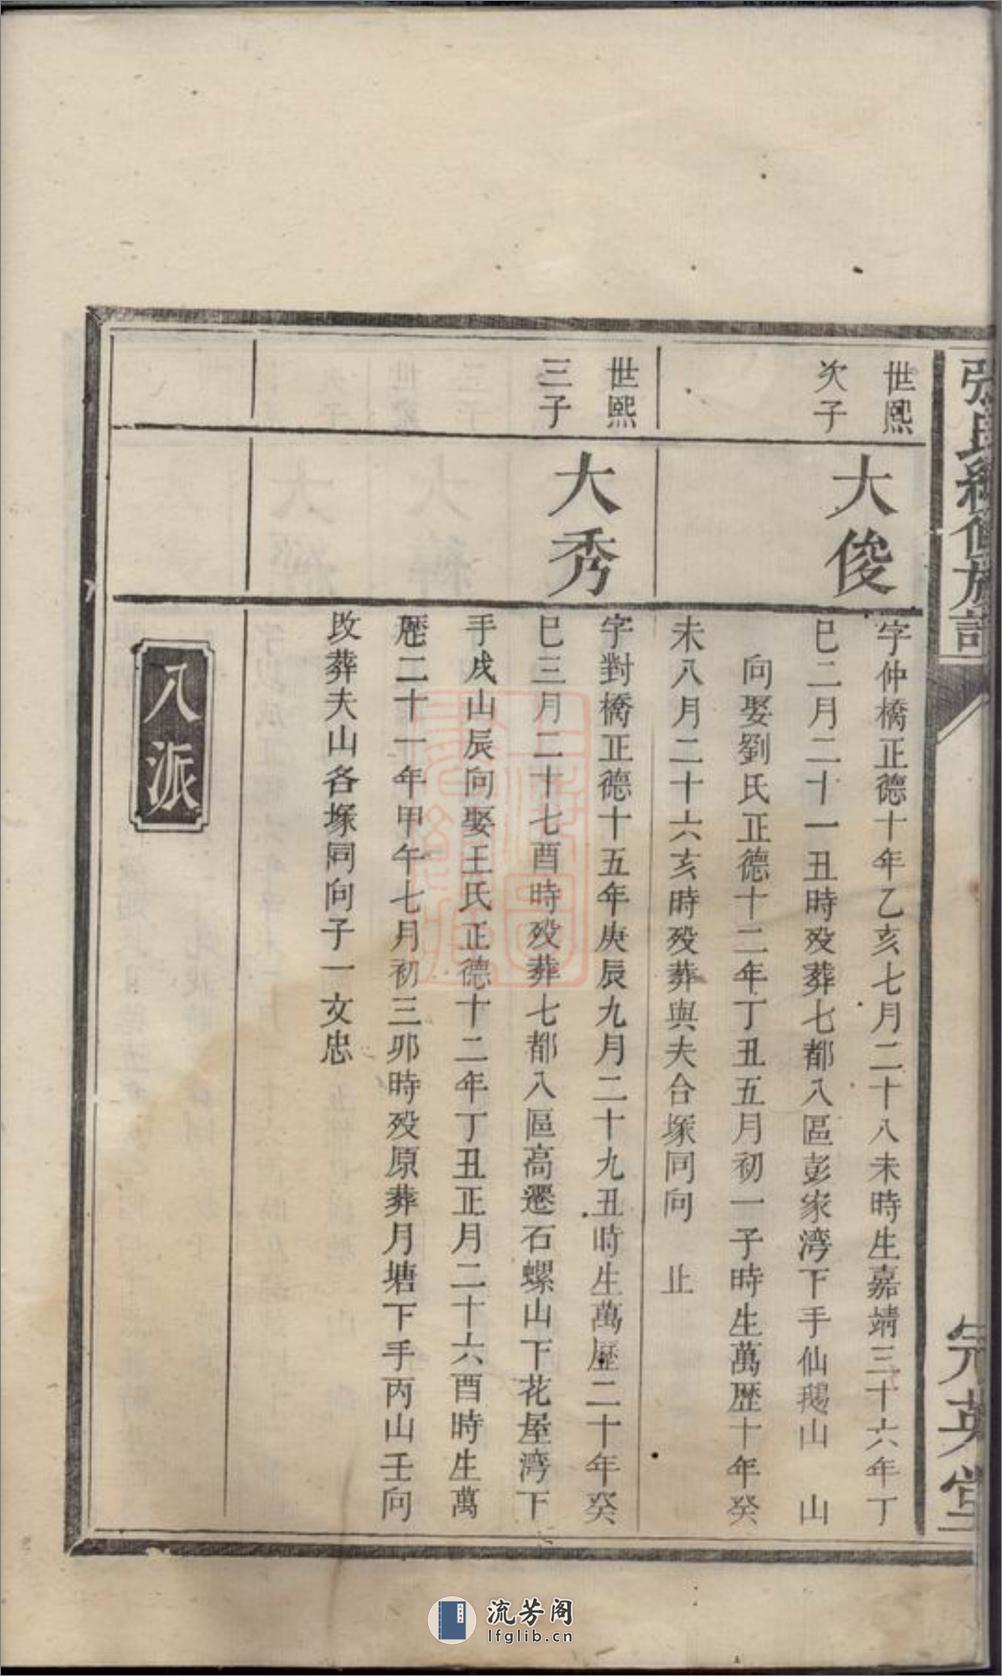 張氏續修族譜
宗英堂
世熙
次子
大俊
字仲橋正德十年乙亥七月二十八未時生嘉靖三十六年丁
巳二月二十一丑時歿葬七都八區彭家湾下手仙鵝山 山
向娶劉氏正德十二年丁丑五月初一子時生萬歷十年癸
未八月二十六亥時歿葬與夫合塚同向 止
世熙
三子
大秀
字對橋正德十五年庚辰九月二十九丑時生萬歷二十年癸
巳三月二十七酉時歿葬七都八區高遷石螺山下花屋湾下
手戌山辰向娶王氏正德十二年丁丑正月二十六酉時生萬
歷二十一年甲午七月初三卯時歿原葬月塘下手丙山壬向
改葬夫山各塚同向子一文忠
八派
流芳阁
lfglib.cn